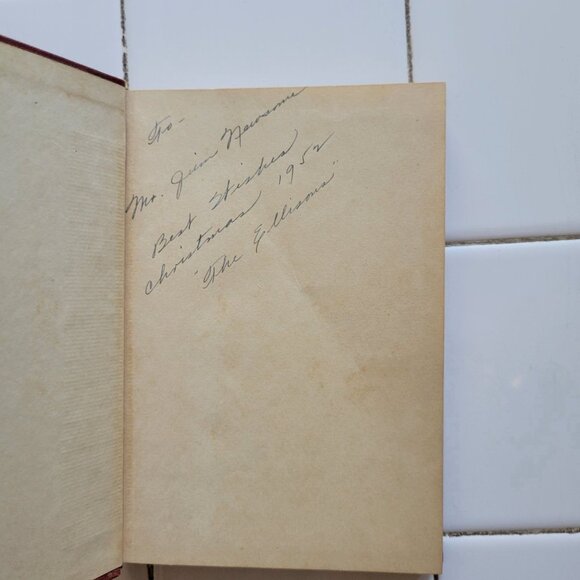 To-
Mr. Jim Newsome
Best Wishes
Christmas 1952
"The Ellisons"